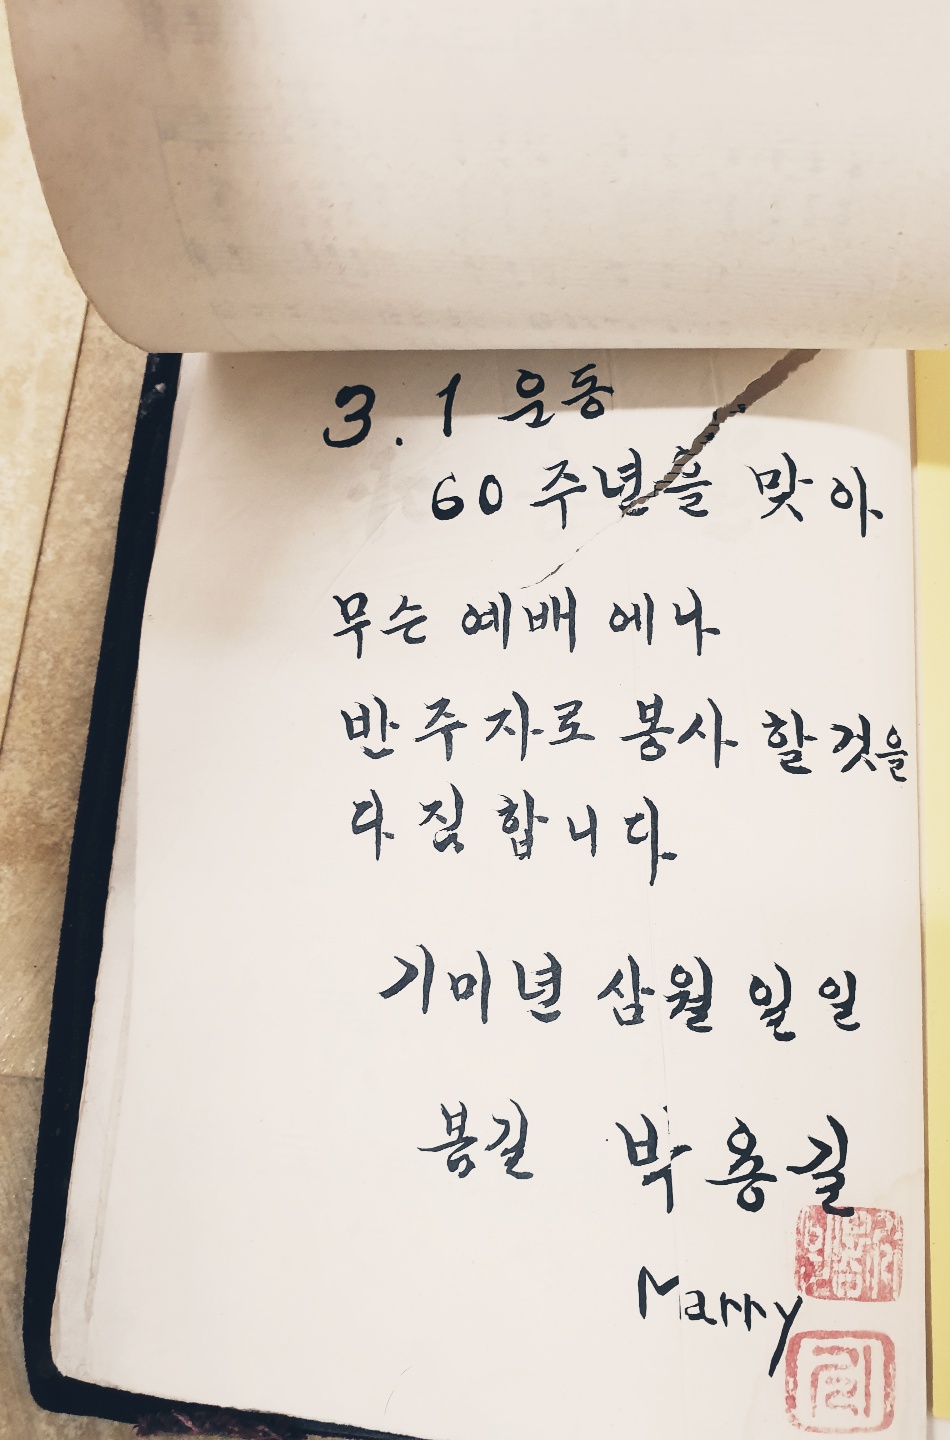 3.1 운동
60 주년을 맞아
무슨 예배 에나
반주자로 봉사 할것을
다짐합니다
기미년 삼월 일일
봄길 박용길
Marry